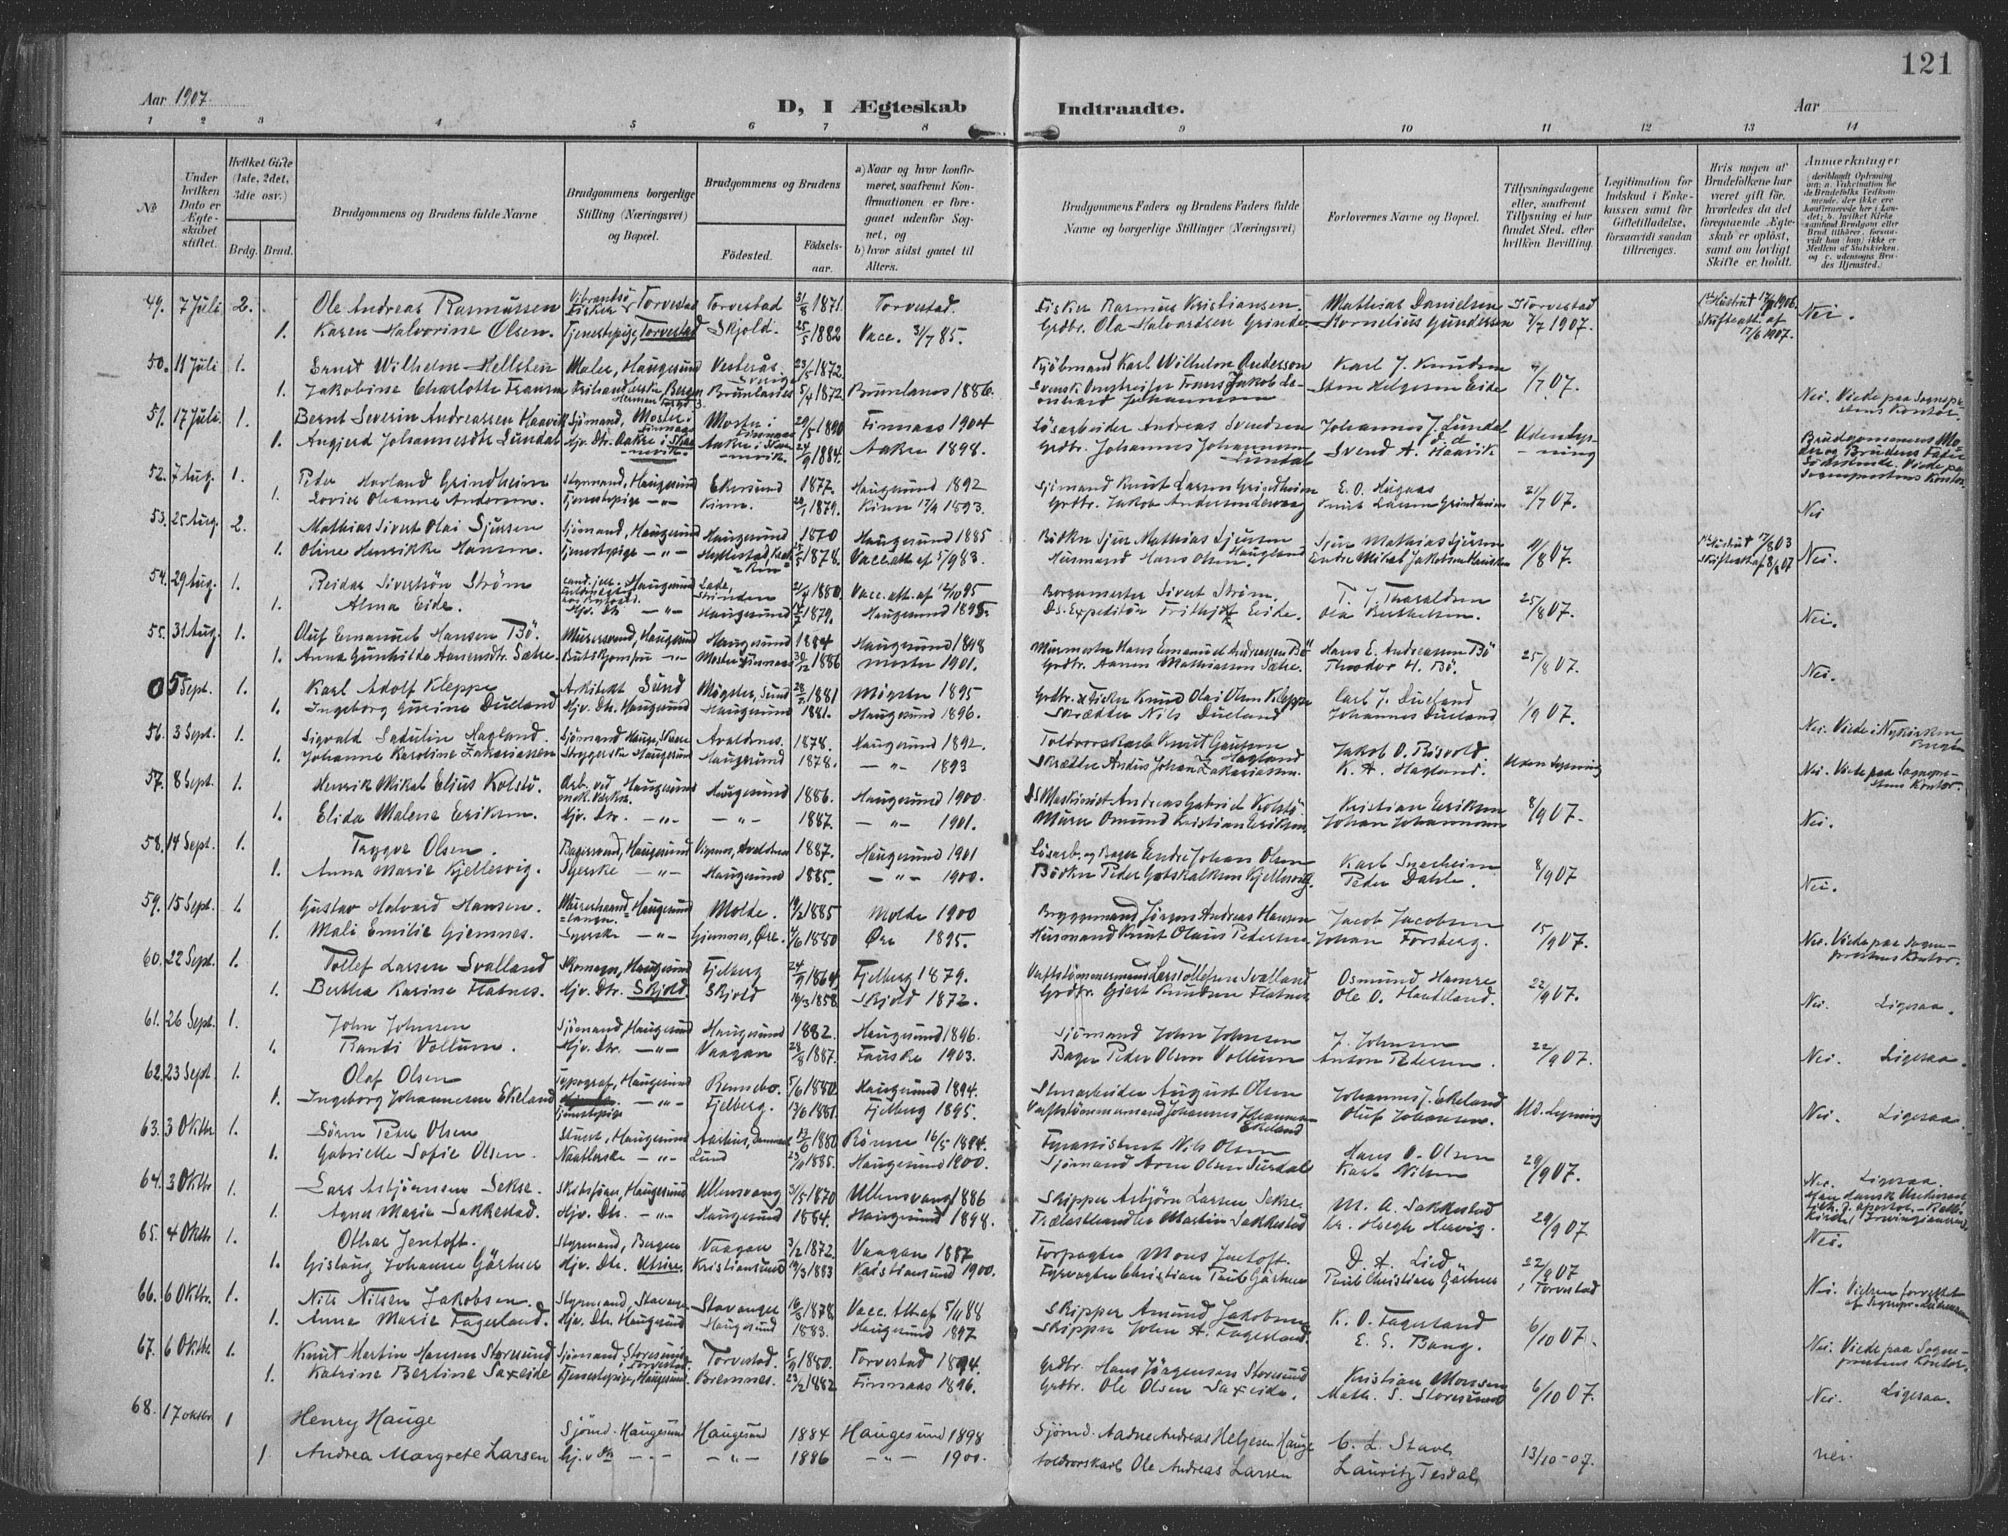 121
Aar 1907.
D, I Ægteskab Indtraadte.
Aar
1 2 3 4 5 6 7 8 9 10 11 12 13 14
№
Under hvilken Dato er Ægteskabet stiftet.
Hvilket Gifte (1ste, 2det, 3dte osv.)
Brdg. Brud.
Brudgommens og Brudens fulde Navne
Brudgommens borgerlige Stilling (Næringsvei) og Bopæl.
Brudgommens og Brudens
Födested. Födsels-aar.
a) Naar og hvor konfirmeret, saafremt Konfirmationen er foregaaet udenfor Sognet, og
b) hvor sidst gaaet til Alters.
Brudgommens Faders og Brudens Faders fulde Navne og borgerlige Stillinger (Næringsvei)
Forlovernes Navne og Bopæl.
Tillysningsdagene eller, saafremt Tillysning ei har fundet Sted, efter hvilken Bevilling.
Legitimation for Indskud i Enkekassen samt for Giftetilladelse, forsaavidt saadan tiltrænges.
Hvis nogen af Brudefolkene har været gift för, hvorledes da det foregaaende Ægteskab er oplöst, samt om lovligt Skifte er holdt.
Anmerkninger
49. 7 Juli 2. Ole Andreas Rasmussen Fisker Torvestad Torvestad 31/8 1871. Torvestad. Fisker Rasmus Kristiansen Mathias Danielsen Torvestad
1. Karen Halvorine Olsen. Tjenestepige, Torvestad Skjold. 25/5 1882 Vacc. 3/7 85. Grdbr. Ola Halvardsen Grinde Kornelius Gundersen 7/7 1907. Skifteatt. af 17/6 1907. Nei.
50. 11 Juli 1. Ernst Wilhelm Hellsten Maler, Haugesund Vesterås Sverige 23/5 1872. Kjöbmand Karl Wilhelm Andersson Karl J. Knudsen
1. Jakobine Charlotte Fransen Bergen Brunlanes 5/4 1872 Brunlanes 1886. Sten Helgesen Eide 7/7 07. Nei. Viede paa Sogneprestens Kontor.
51. 17 Juli 1. Bernt Severin Andreassen Haavik Sjömand, Moster, Finnaas Moster Finnaas 29/5 1890 Finnaas 1904 Lösarbeider Andreas Svendsen Johannes J. Lundal
1. Angjerd Johannesdtr Lundal Hjv. Dtr. Aakre i Skaanevik Aakre i Skaanevik 24/9 1884. Aakre 1898. Grdbr. Johannes Johannessen Lundal Svend A. Haavik Uden lysning
52. 7 Aug. 1. Peder Hovland Grindheim Styrmand, Haugesund Ekersund 1877. Haugesund 1892 Sjömand Knut Larsen Grindheim E. O. Hugaas
1. Lovise Oleanne Andersen. Tjenestepige -"- Kinn. 20/1 1879. Kinn 17/9 1893. Knut Larsen Grindheim 21/7 07. Nei
53. 25 Aug. 2. Mathias Sivert Olai Sjursen Sjömand, Haugesund Haugesund 1870 Haugesund 1885 Bödker Sjur Mathias Sjursen Sjur Mathias Sjursen
1. Oline Henrikke Hansen. Tjenestepige -"- 1878. Vacc. att. af 5/9 83. Husmand Hans Olsen Haugland Endre Mikal Jakobsen 11/8 07. Skifteatt. af 8/8 07 Nei.
54. 29 Aug. 1. Reidar Sivertsön Ström Haugesund Lade Strinden 21/4 1880. Vacc. att. af 12/10 95 Borgermester Sivert Ström. T. J. Thoraldsen
1. Alma Eide. Hjv. Dtr. -"- Haugesund 1879. Haugesund 1895. Ds. Expeditör Frithjof Eide. Ola Berthelsen. 25/8 07. Nei.
55. 31 Aug. 1. Oluf Emanuel Hansen Bö. Murersvend, Haugesund Haugesund 1884 Haugesund 1898 Murmester Hans Emanuel Andreassen Bö Hans E. Andreassen Bö
1. Anna Gunhilda Aanensdtr. Sætre. -"- Moster Finnaas 30/12 1886 Moster 1901. Grdbr. Aanen Mathiassen Sætre. Theodor H. Bö. 25/8 07. Nei.
0 5 Sept. 1. Karl Adolf Kleppe Arkitekt Sund Mögster, Sund 28/7 1881 Mögster 1895 Grdbr. & Fisker Knud Olai Olsen Kleppe Carl J. Dueland
1. Ingeborg Gurine Dueland Hjv. Dtr. Haugesund Haugesund 1881. Haugesund 1896. Skrædder Nils Dueland Johannes Dueland 1/9 07. Nei. Viede i Nykirken Bergen
56. 3 Sept. 1. Sigvald Ladulin Hagland. Sjömand Avaldsnes. 1878. Haugesund 1892. Toldvorskarl Knut Gausson Hagland Jakob O. Risvold.
1. Johanne Karoline Zakariassen Strygerske Haugesund Haugesund 1878. -"- 1893 Skrædder Andus Johan Zakariassen. K. A. Hagland. Uden lysning Nei. Viede paa Sogneprestens Kontor.
57. 8 Sept. 1. Henrik Mikal Elius Kolstö. Arb. ved mek. Verkst. Haugesund Haugesund 1886. Haugesund 1900. DS Maskinist Andreas Gabriel Kolstö Kristian Eriksen
1. Elida Malene Eriksen. Hjv. Dtr. -"- -"- 1887. -"- 1901. Murer Omund Kristian Eriksen Johan Johannessen 8/9 07. Nei.
58. 14 Sept. 1. Trygve Olsen. Bagersvend, Haugesund Avaldsnes 1887. Haugesund 1901 Lösarb. og Bager Endre Johan Olsen Karl Snerheim
1. Anna Marie Kjellesvig. Syerske -"- Haugesund 1885. -"- 1900. Bödker Peder Gotskalksen Kjellesvig Peder Dahle. 8/9 07 Nei.
59. 15 Sept. 1. Gustav Halvard Hansen. Haugesund Molde. 19/2 1885 Molde 1900 Bryggemand Jörgen Andreas Hansen Jacob Jacobsen
1. Mali Emilie Gjemnes. Syerske -"- Gjemnes, Öre. 4/6 1880 Öre 1895. Husmand Knut Olaus Pedersen Johan Forsberg. 15/9 07. Nei. Viede paa Sogneprestens Kontor.
60. 22 Sept. 1. Tollef Larsen Svalland Skomager, Haugesund Fjelberg 24/9 1864 Fjelberg 1879. Lars Tollefsen Svalland Osmund Hamre
1. Bertha Karine Flatnes. Hjv. Dtr. Skjold. Skjold 19/3 1858 Skjold 1872. Grdbr. Gjert Knudsen Flatnes Ole O. Haudeland. 22/9 07. Nei. Ligesaa.
61. 26 Sept. 1. John Johnsen Sjömand, Haugesund Haugesund 1882. Haugesund 1896. Sjömand John Johnsen J. Johnsen
1. Randi Vollum. Hjv. Dtr. -"- Vaagan 28/8 1887. Fauske 1903. Bager Peder Olsen Vollum Anton Pedersen. 22/9 07. Nei. Ligesaa.
62. 23 Sept. 1. Olaf Olsen Typograf, Haugesund Rennebo. 5/6 1880. Haugesund 1894. Stenarbeider August Olsen Johannes J. Ekeland
1. Ingeborg Johannesen Ekeland Tjenestepige -"- Fjelberg. 17/6 1881. Fjelberg 1895. Johannes Johannesen Ekeland Oluf Johansen. Ud. Lysning Nei. Ligesaa.
63. 3 Oktbr 1. Sören Peter Olsen Stuert, Haugesund Aarhus, Danmark 13/6 1880 Rönne 16/5 1894. Fyrassistent Nils Olsen Hans O. Olsen
1. Gabrielle Sofie Olsen. -"- Lund 1885. Haugesund 1900. Sjömand Arne Olsen Karl Nilsen 29/9 07. Nei. Ligesaa.
64. 3 Oktbr 1. Lars Asbjörnsen Sekse. Haugesund Ullensvang 31/5 1870 Ullensvang 1886 Skipper Asbjörn Larsen Sekse. M. A. Sakkestad
1. Agnes Marie Sakkestad. Hjv. Dtr. -"- Haugesund 1884. Haugesund 1898. Trælasthandler Martin Sakkestad 29/9 07 Nei.
65. 4 Oktbr 1. Othar Jentoft. Styrmand, Bergen Vaagan 3/2 1872. Vaagan 1887 Forpagter Mons Jentoft. D. A. Lied
1. Gislaug Johanne Gärtner Hjv. Dtr. Utsire. Kristiansund 19/3 1883 Kristiansund 1900. Fyrvogter Christian Paul Gärtner Paul Christian Gärtner 22/9 07 i Torvestad
66. 6 Oktbr. 1. Nils Nilsen Jakobsen. Styrmand, Stavanger Stavanger 16/8 1878. Vacc. Att. af 5/11 88 Skipper Amund Jakobsen K. O. Fagerland
1. Anna Marie Fagerland. Hjv. Dtr. Haugesund Haugesund 1883. Haugesund 1897 Skipper John A. Fagerland. E. E. Bang. 6/10 07.
67. 6 Oktbr 1. Knut Martin Hansen Storesund Sjömand, Storesund i Torvestad Torvestad. 5/9 1880. Torvestad 1894. Grdbr. Hans Jörgensen Storesund Kristian Monsen
1. Katrine Bertine Saxeide Tjenestepige, Haugesund. Bremnes. 23/2 1882 Finnaas 1896. Grdbr. Ole Olsen Saxeide. Math. S. Storesund 6/10 07. Nei. Ligesaa.
68. 17 oktbr 1 Henry Hauge Sjömd. Haugesund Haugesund 1884 Haugesund 1898 Sjömd. Aadne Andreas Helgesen Hauge C. L. Stave
1 Andrea Margrete Larsen hj.v dtr -"- -"- 1886 -"- 1900. toldvorskarl Ole Andreas Larsen Lauritz Tesdal 13/10-07. nei.